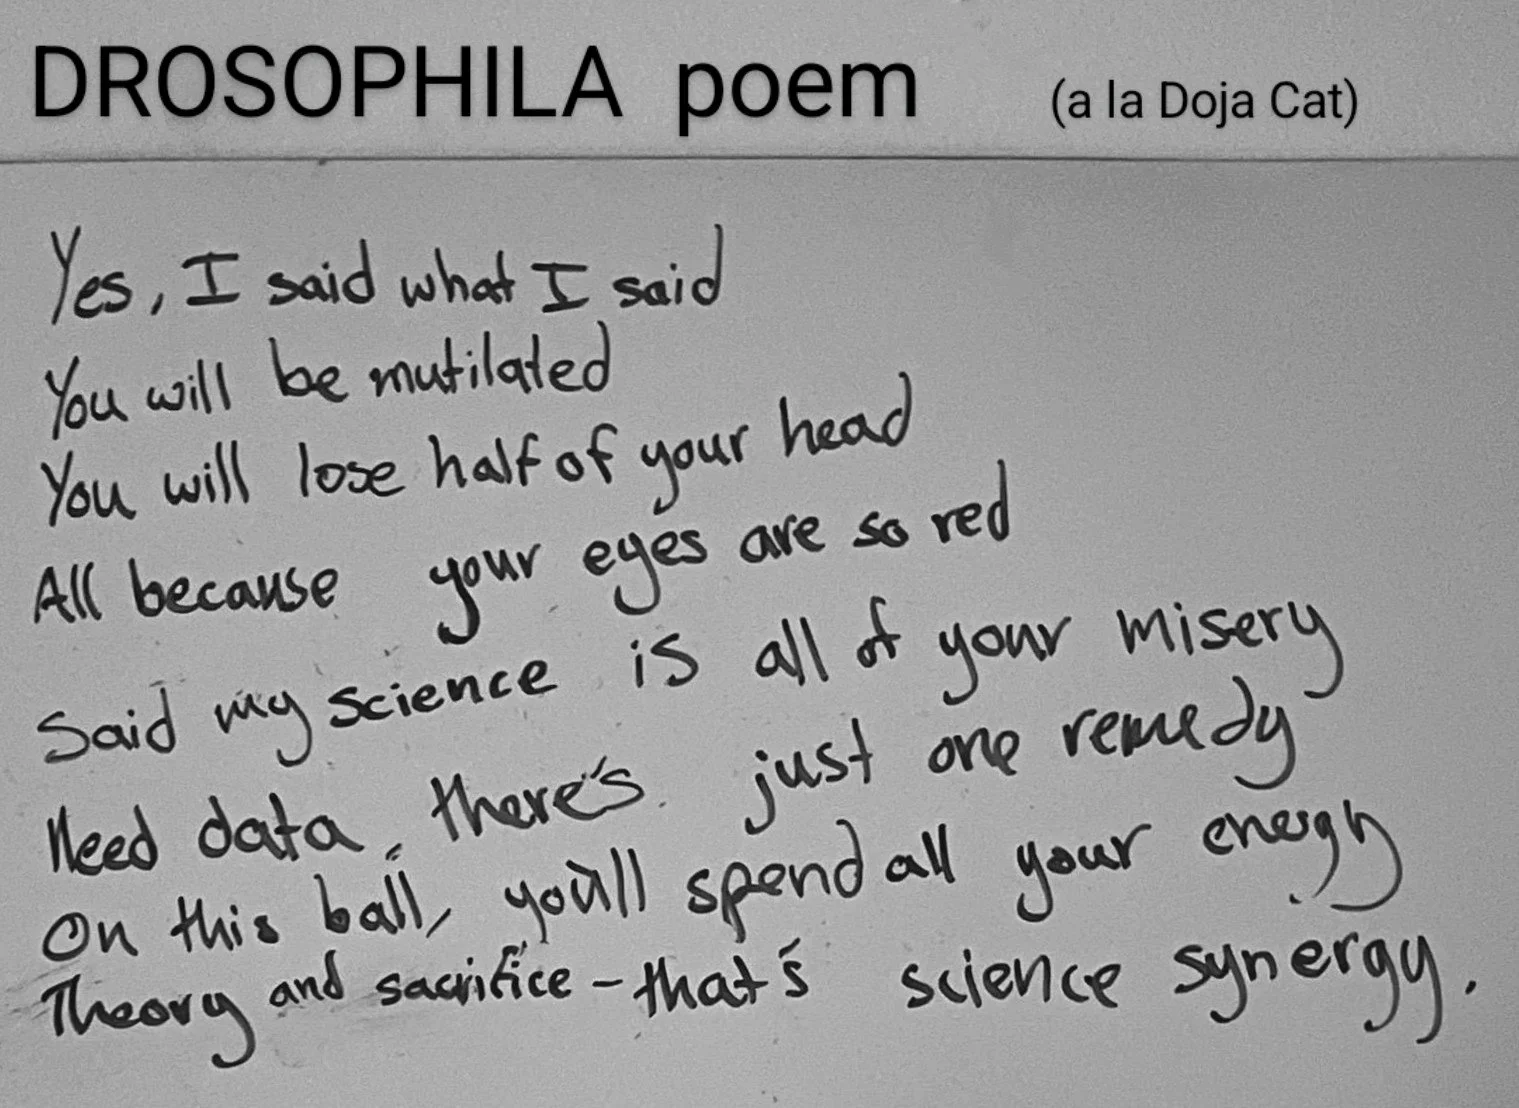 DROSOPHILA poem (a la Doja Cat)
Yes, I said what I said
You will be mutilated
You will lose half of your head
All because your eyes are so red
Said my science is all of your misery
Need data, there's just one remedy
On this ball, you'll spend all your energy
Theory and sacrifice - that's science synergy.